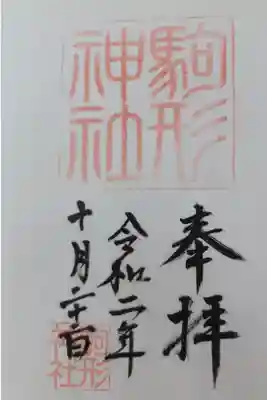 駒形
神社
奉拝
令和二年
十月二十一日
駒形
神社